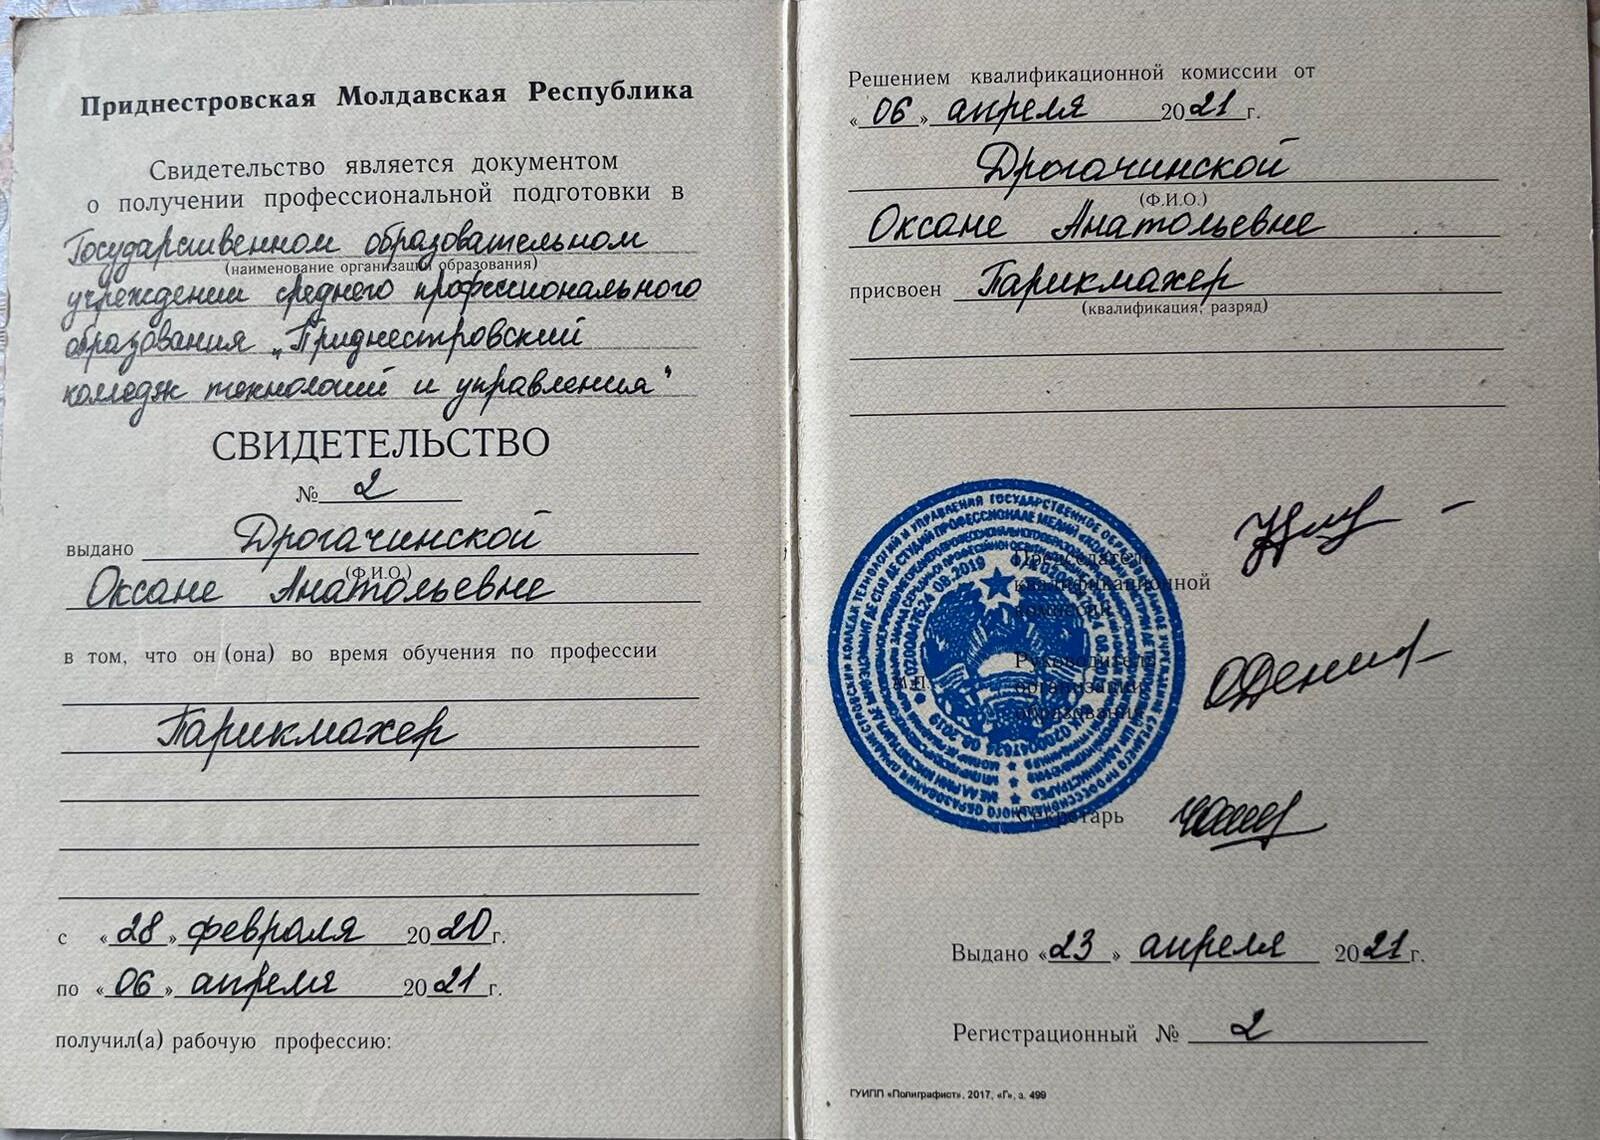 Приднестровская Молдавская Республика
Свидетельство является документом
о получении профессиональной подготовки в
Государственном образовательном
(наименование организации образования)
учреждении среднего профессионального
образования „Приднестровский
колледж технологий и управления"
СВИДЕТЕЛЬСТВО
№ 2
выдано Дрогачинской
(Ф.И.О.)
Оксане Анатольевне
в том, что он (она) во время обучения по профессии
Парикмахер
с «28» февраля 2020г.
по «06» апреля 2021г.
получил(а) рабочую профессию:
Решением квалификационной комиссии от
«06» апреля 2021г.
Дрогачинской
(Ф.И.О.)
Оксане Анатольевне
присвоен Парикмахер
(квалификация, разряд)
Председатель
квалификационной
комиссии
М.П.
Руководитель
организации
образования
Секретарь
Выдано «23» апреля 2021г.
Регистрационный № 2
ГУИПП «Полиграфист», 2017, «Г», з. 499